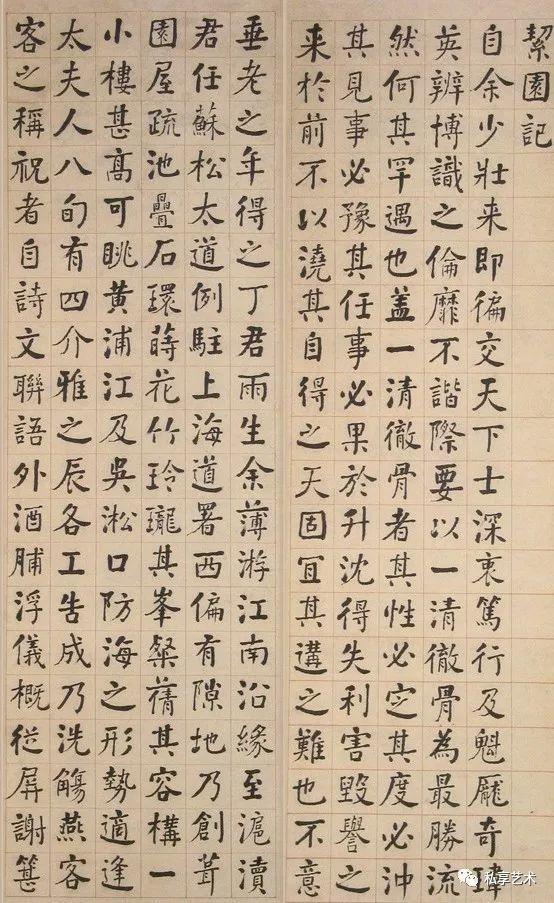 絜園記
自余少壯来即徧交天下士深衷篤行及魁厖奇瑋
英辨博識之倫靡不諧際要以一清徹骨為最勝流
然何其罕遇也盖一清徹骨者其性必定其度必沖
其見事必豫其任事必果於升沈得失利害毀譽之
来於前不以澆其自得之天固宜其遘之難也不意
垂老之年得之丁君雨生余薄游江南沿緣至滬瀆
君任蘇松太道例駐上海道署西偏有隙地乃創葺
園屋疏池疊石環蒔花竹玲瓏其峯粲蒨其容構一
小樓甚高可眺黄浦江及吳淞口防海之形勢適逢
太夫人八旬有四介雅之辰各工告成乃洗觴燕客
客之稱祝者自詩文聯語外酒脯浮儀概從屏謝簋
私享艺术